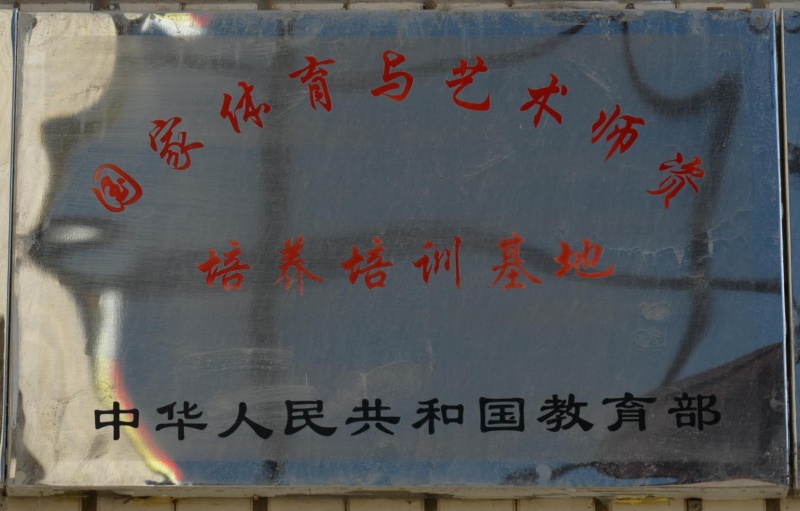 国家体育与艺术师资
培养培训基地
中华人民共和国教育部